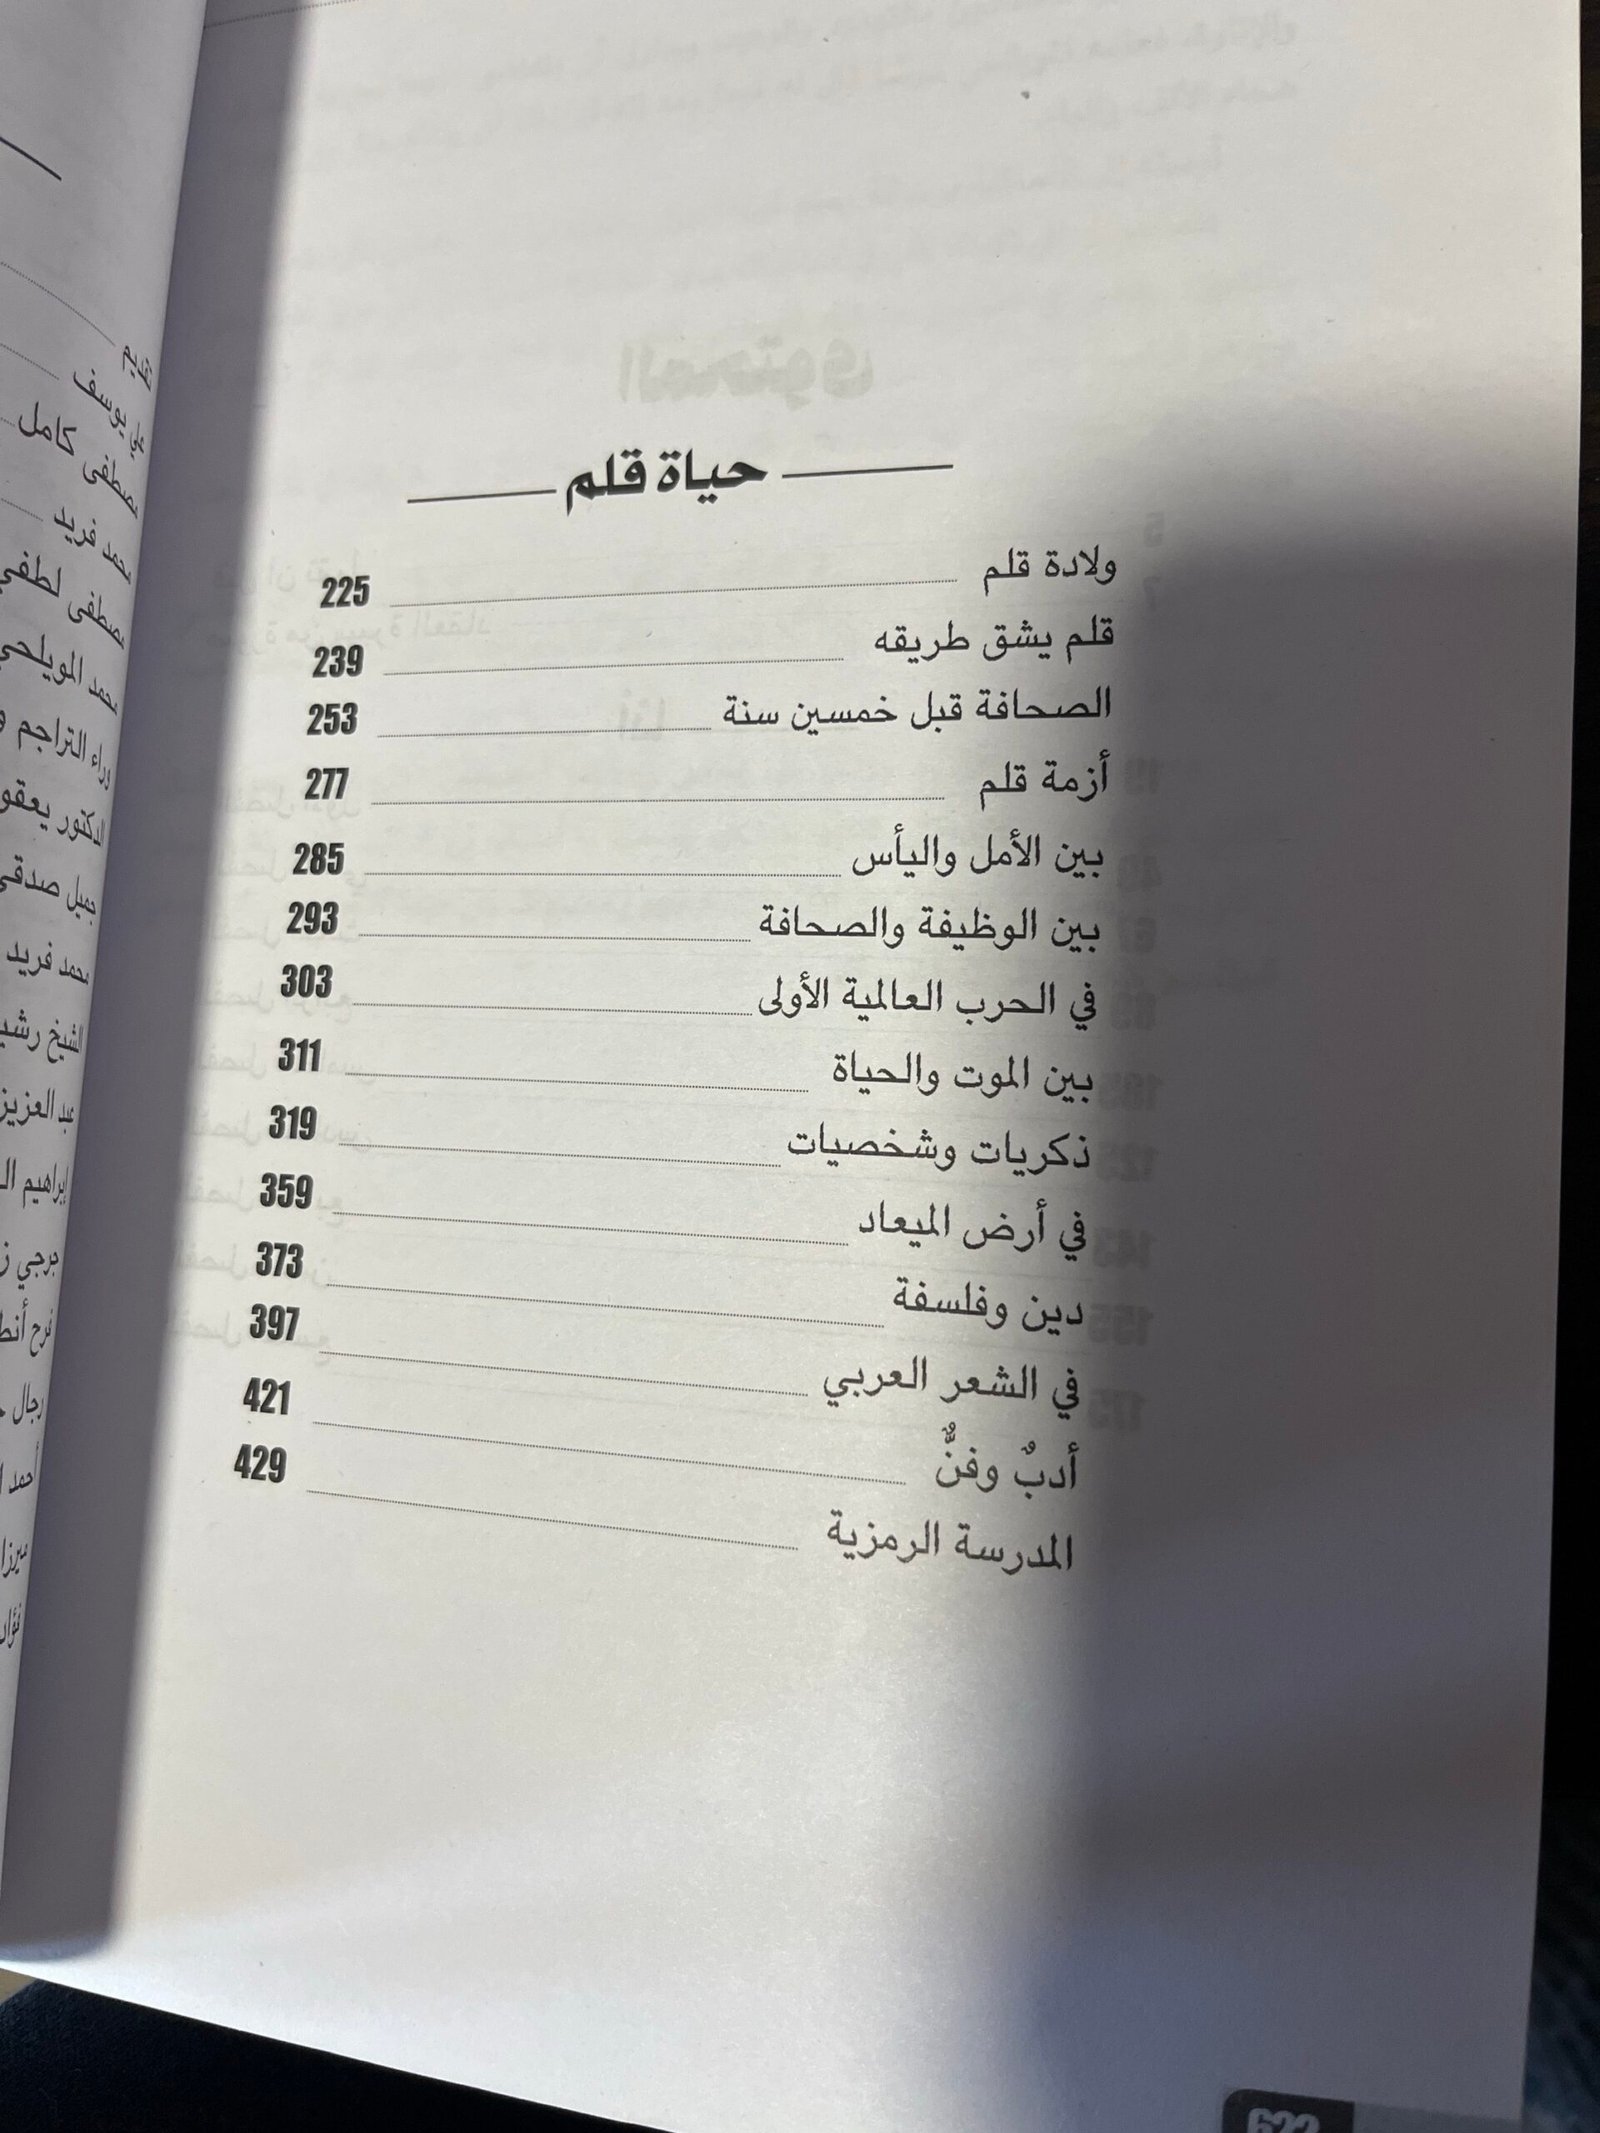 حياة قلم
ولادة قلم 225
قلم يشق طريقه 239
الصحافة قبل خمسين سنة 253
أزمة قلم 277
بين الأمل واليأس 285
بين الوظيفة والصحافة 293
في الحرب العالمية الأولى 303
بين الموت والحياة 311
ذكريات وشخصيات 319
في أرض الميعاد 359
دين وفلسفة 373
في الشعر العربي 397
أدبٌ وفنٌّ 421
المدرسة الرمزية 429
622
تقديم
علي يوسف
مصطفى كامل
محمد فريد
مصطفى لطفي
محمد المويلحي
وراء التراجم
الدكتور
جميل صدقي
محمد فريد
الشيخ
عبد العزيز
إبراهيم
جرجي
فرح
رجال
أحمد